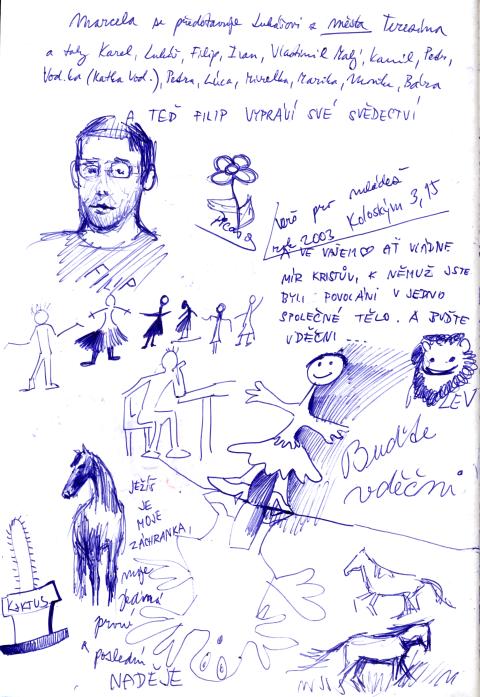 Marcela se představuje Lukášovi z města Terezína
a taky Karel, Lukáš, Filip, Ivan, Vladimil Malý, Kamil, Petr,
Vod.ka (Katka Vod.), Petra, Luca, Mirelka, Marika, Monika, Bára
A TEĎ FILIP VYPRAVÍ SVÉ SVĚDECTVÍ
verš pro mládež
rok 2003 Koloským 3,15
A VE VAŠEM AŤ VLÁDNE
MÍR KRISTŮV, K NĚMUŽ JSTE
BYLI POVOLÁNI V JEDNO
SPOLEČNÉ TĚLO. A BUĎTE
VDĚČNI
LEV
Buďte
vděčni
JEŽÍŠ
JE
MOJE
ZÁCHRANKA,
moje
jediná
první
a poslední
NADĚJE
KAKTUS